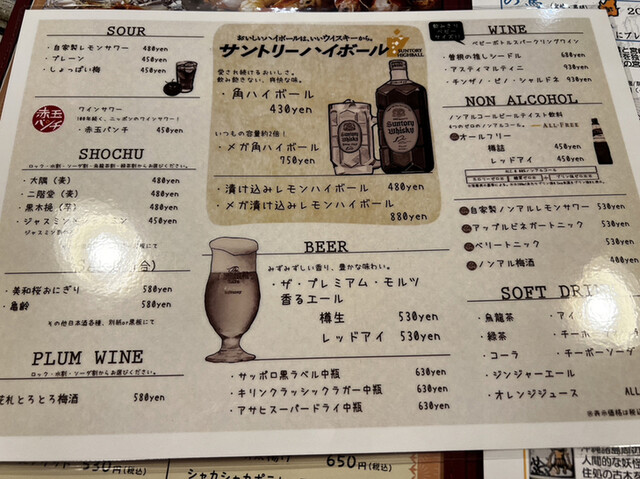 SOUR
・自家製レモンサワー 480yen
・プレーン 450yen
・しょっぱい梅 450yen
赤玉パンチ
ワインサワー
100年続く、ニッポンのワインサワー!
・赤玉パンチ 450yen
SHOCHU
ロック・水割・ソーダ割・烏龍茶割・緑茶割からお選びください。
・大隅(麦) 480yen
・二階堂(麦) 480yen
・黒木
480yen
・ジャスミン 450yen
ジャスミン
にて
合)
・美和桜おにぎり 580yen
・亀齢 580yen
その他日本酒各種、別紙or黒板にて
PLUM WINE
ロック・水割・ソーダ割からお選びください。
花札とろとろ梅酒 580yen
おいしいハイボールは、いいウイスキーから。
サントリーハイボール
SUNTORY HIGHBALL
愛され続けるおいしさ。
飲み飽きない、爽快な味。
・角ハイボール
430yen
いつもの容量約2倍!
・メガ角ハイボール
750yen
Suntory Whisky
・漬け込みレモンハイボール 480yen
・メガ漬け込みレモンハイボール
880yen
BEER
みずみずしい香り、豊かな味わい。
・ザ・プレミアム・モルツ
香るエール
樽生 530yen
レッドアイ 530yen
・サッポロ黒ラベル中瓶 630yen
・キリンクラッシックラガー中瓶 630yen
・アサヒスーパードライ中瓶 630yen
飲みきりベビーサイズ!
WINE
ベビーボトルスパークリングワイン
・曽根の穏しシードル 680yen
・アスティマルティニ 930yen
・チンザノ・ピノ・シャルドネ 930yen
NON ALCOHOL
ノンアルコールビールテイスト飲料
4つのゼロのノンアルコール。 ALL-FREE
オールフリー
樽詰 450yen
レッドアイ 450yen
自家製ノンアルレモンサワー 530yen
アップルビネガートニック 530yen
ベリートニック 530yen
ノンアル梅酒 400yen
SOFT DRIN
・烏龍茶 ・アイ
・緑茶 ・チーボ
・コーラ ・チーボーソーダ
・ジンジャーエール
・オレンジジュース ALL
※表示価格は税込
530円(税込)
650円(税込)
シャカシャカポ
人間的な妖怪
住処の古木を